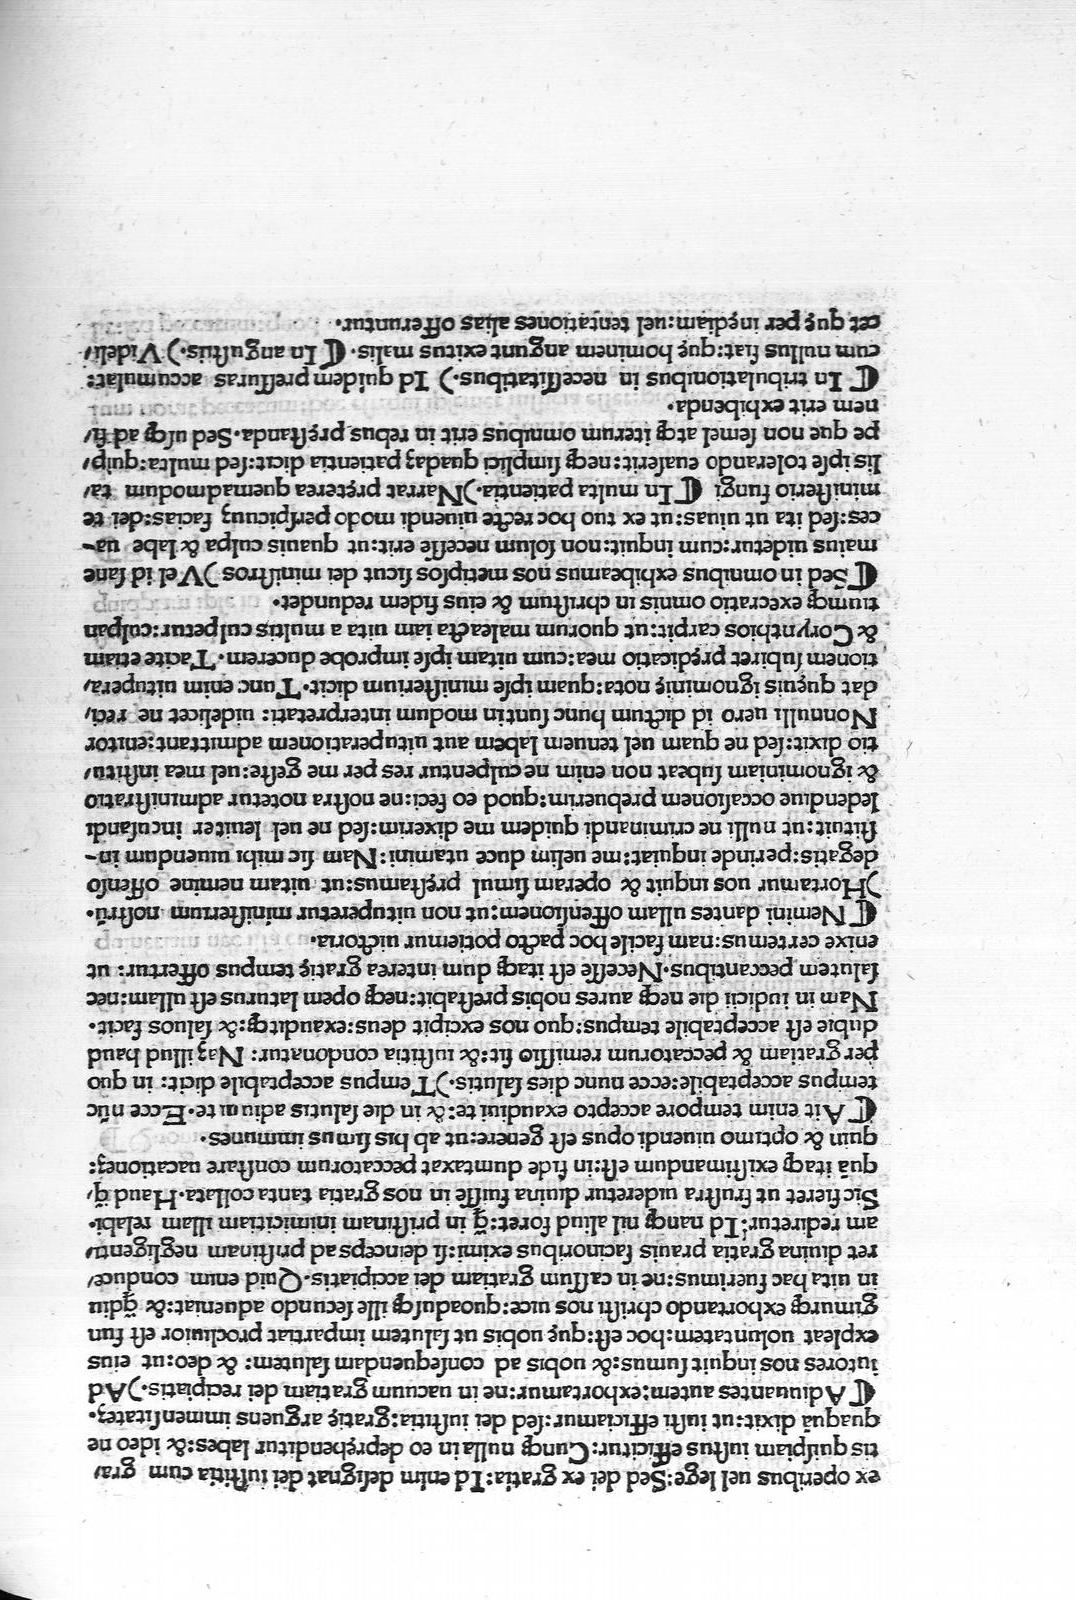 ex operibus uel lege:Sed dei ex gratia:Id enim deſignat dei iuſtitia cum gra/
tis quiſpiam iuſtus efficitur:Cunq; nulla in eo depręhenditur labes:& ideo ne
quaquā dixit:ut iuſti efficiamur:ſed dei iuſtitia:gratię arguens immenſitateȝ.
⸿ Adiuuantes autem:exhortamur:ne in uacuum gratiam dei recipiatis.)Ad
iutores nos inquit ſumus:& uobis ad conſequendam ſalutem: & deo:ut eius
expleat uoluntatem:hoc eſt:quę uobis ut ſalutem impartiat procliuior eſt fun
gimurq; exhortando chriſti nos uice:quoaduſq; ille ſecundo adueniat:& q̄diu
in uita hac fuerimus:ne in caſſum gratiam dei accipiatis.Quid enim conduce/
ret diuina gratia prauis facinoribus eximi:ſi deinceps ad priſtinam negligenti/
am rediretur:Id nanq; nil aliud foret:q̄ in priſtinam inimicitiam illam relabi.
Sic fieret ut fruſtra uideretur diuina fuiſſe in nos gratia tanta collata.Haud q̄/
quā itaq; exiſtimandum eſt:in fide dumtaxat peccatorum conſtare uacationeȝ:
quin & optimo uiuendi opus eſt genere:ut ab his ſimus immunes.
⸿ Ait enim tempore accepto exaudiui te:& in die ſalutis adiuui te.Ecce nūc
tempus acceptabile:ecce nunc dies ſalutis.)Tempus acceptabile dicit: in quo
per gratiam & peccatorum remiſſio fit:& iuſtitia condonatur: Naȝ illud haud
dubie eſt acceptabile tempus:quo nos excipit deus:exauditq;:& ſaluos facit.
Nam in iudicii die neq; aures nobis preſtabit:neq; opem laturus eſt ullam:nec
ſalutem peccantibus.Neceſſe eſt itaq; dum interea gratię tempus offertur: ut
enixe certemus:nam facile hoc pacto potiemur uictoria.
⸿ Nemini dantes ullam offenſionem:ut non uituperetur miniſterium noſtrū.
)Hortamur uos inquit & operam ſimul pręſtamus:ut uitam nemine offenſo
degatis:perinde inquiat:me uelim duce utamini:Nam ſic mihi uiuendum in-
ſtituit:ut nulli ne criminandi quidem me dixerim:ſed ne uel leuiter incuſandi
ledendiue occaſionem prebuerim:quod eo feci:ne noſtra notetur adminiſtratio
& ignominiam ſubeat non enim ne culpentur res per me geſte:uel mea inſtitu/
tio dixit:ſed ne quam uel tenuem labem aut uituperationem admittant:enitor
Nonnulli uero id dictum hunc ſunt in modum interpretati: uidelicet ne reci/
dat quęuis ignominię nota:quam ipſe miniſterium dicit.Tunc enim uitupera/
tionem ſubiret prędicatio mea:cum uitam ipſe improbe ducerem.Tacite etiam
& Corynthios carpit:ut quorum maleacta iam uita a multis culpetur:culpan
tiumq; execratio omnis in chriſtum & eius fidem redundet.
⸿ Sed in omnibus exhibeamus nos metipſos ſicut dei miniſtros)Vel id ſane
maius uidetur:cum inquit:non ſolum neceſſe erit:ut quauis culpa & labe ua-
ces:ſed ita ut uiuas:ut ex tuo hoc recte uiuendi modo perſpicuuȝ facias:dei te
miniſterio fungi ⸿ In multa patientia.)Narrat pręterea quemadmodum ta/
lis ipſe tolerando euaſerit:neq; ſimplici quadaȝ patientia dicit:ſed multa:quip/
pe que non ſemel atq; iterum omnibus erit in rebus pręſtanda.Sed uſq; ad fi/
nem erit exhibenda.
⸿ In tribulationibus in neceſſitatibus.) Id quidem preſſuras accumulat:
cum nullus fiat:quę hominem angunt exitus malis.⸿ In anguſtiis.)Videli/
cet quę per inędiam:uel tentationes alias offeruntur.